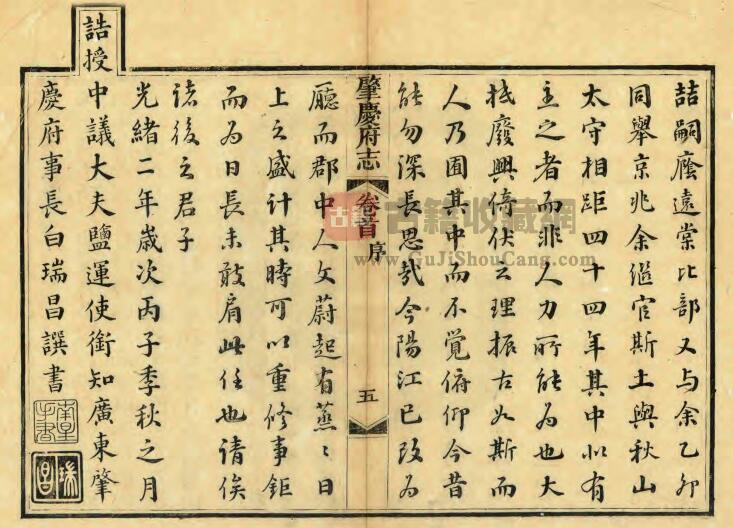 喆嗣廕遠棠比部又与余乙卯
同舉京兆余继官斯土與秋山
太守相距四十四年其中似有
主之者而非人力所能为也大
抵廢興倚伏之理振古如斯而
人乃囿其中而不覺俯仰今昔
能勿深長思哉今陽江已改为
肇慶府志
卷首
序
五
廳而郡中人文蔚起有蒸〻日
上之盛计其時可以重修事鉅
而为日長未敢肩此任也请俟
诸後之君子
光緒二年歲次丙子季秋之月
誥授中議大夫鹽運使銜知廣東肇
慶府事長白瑞昌譔書
古籍收藏網
www.GuJiShouCang.com